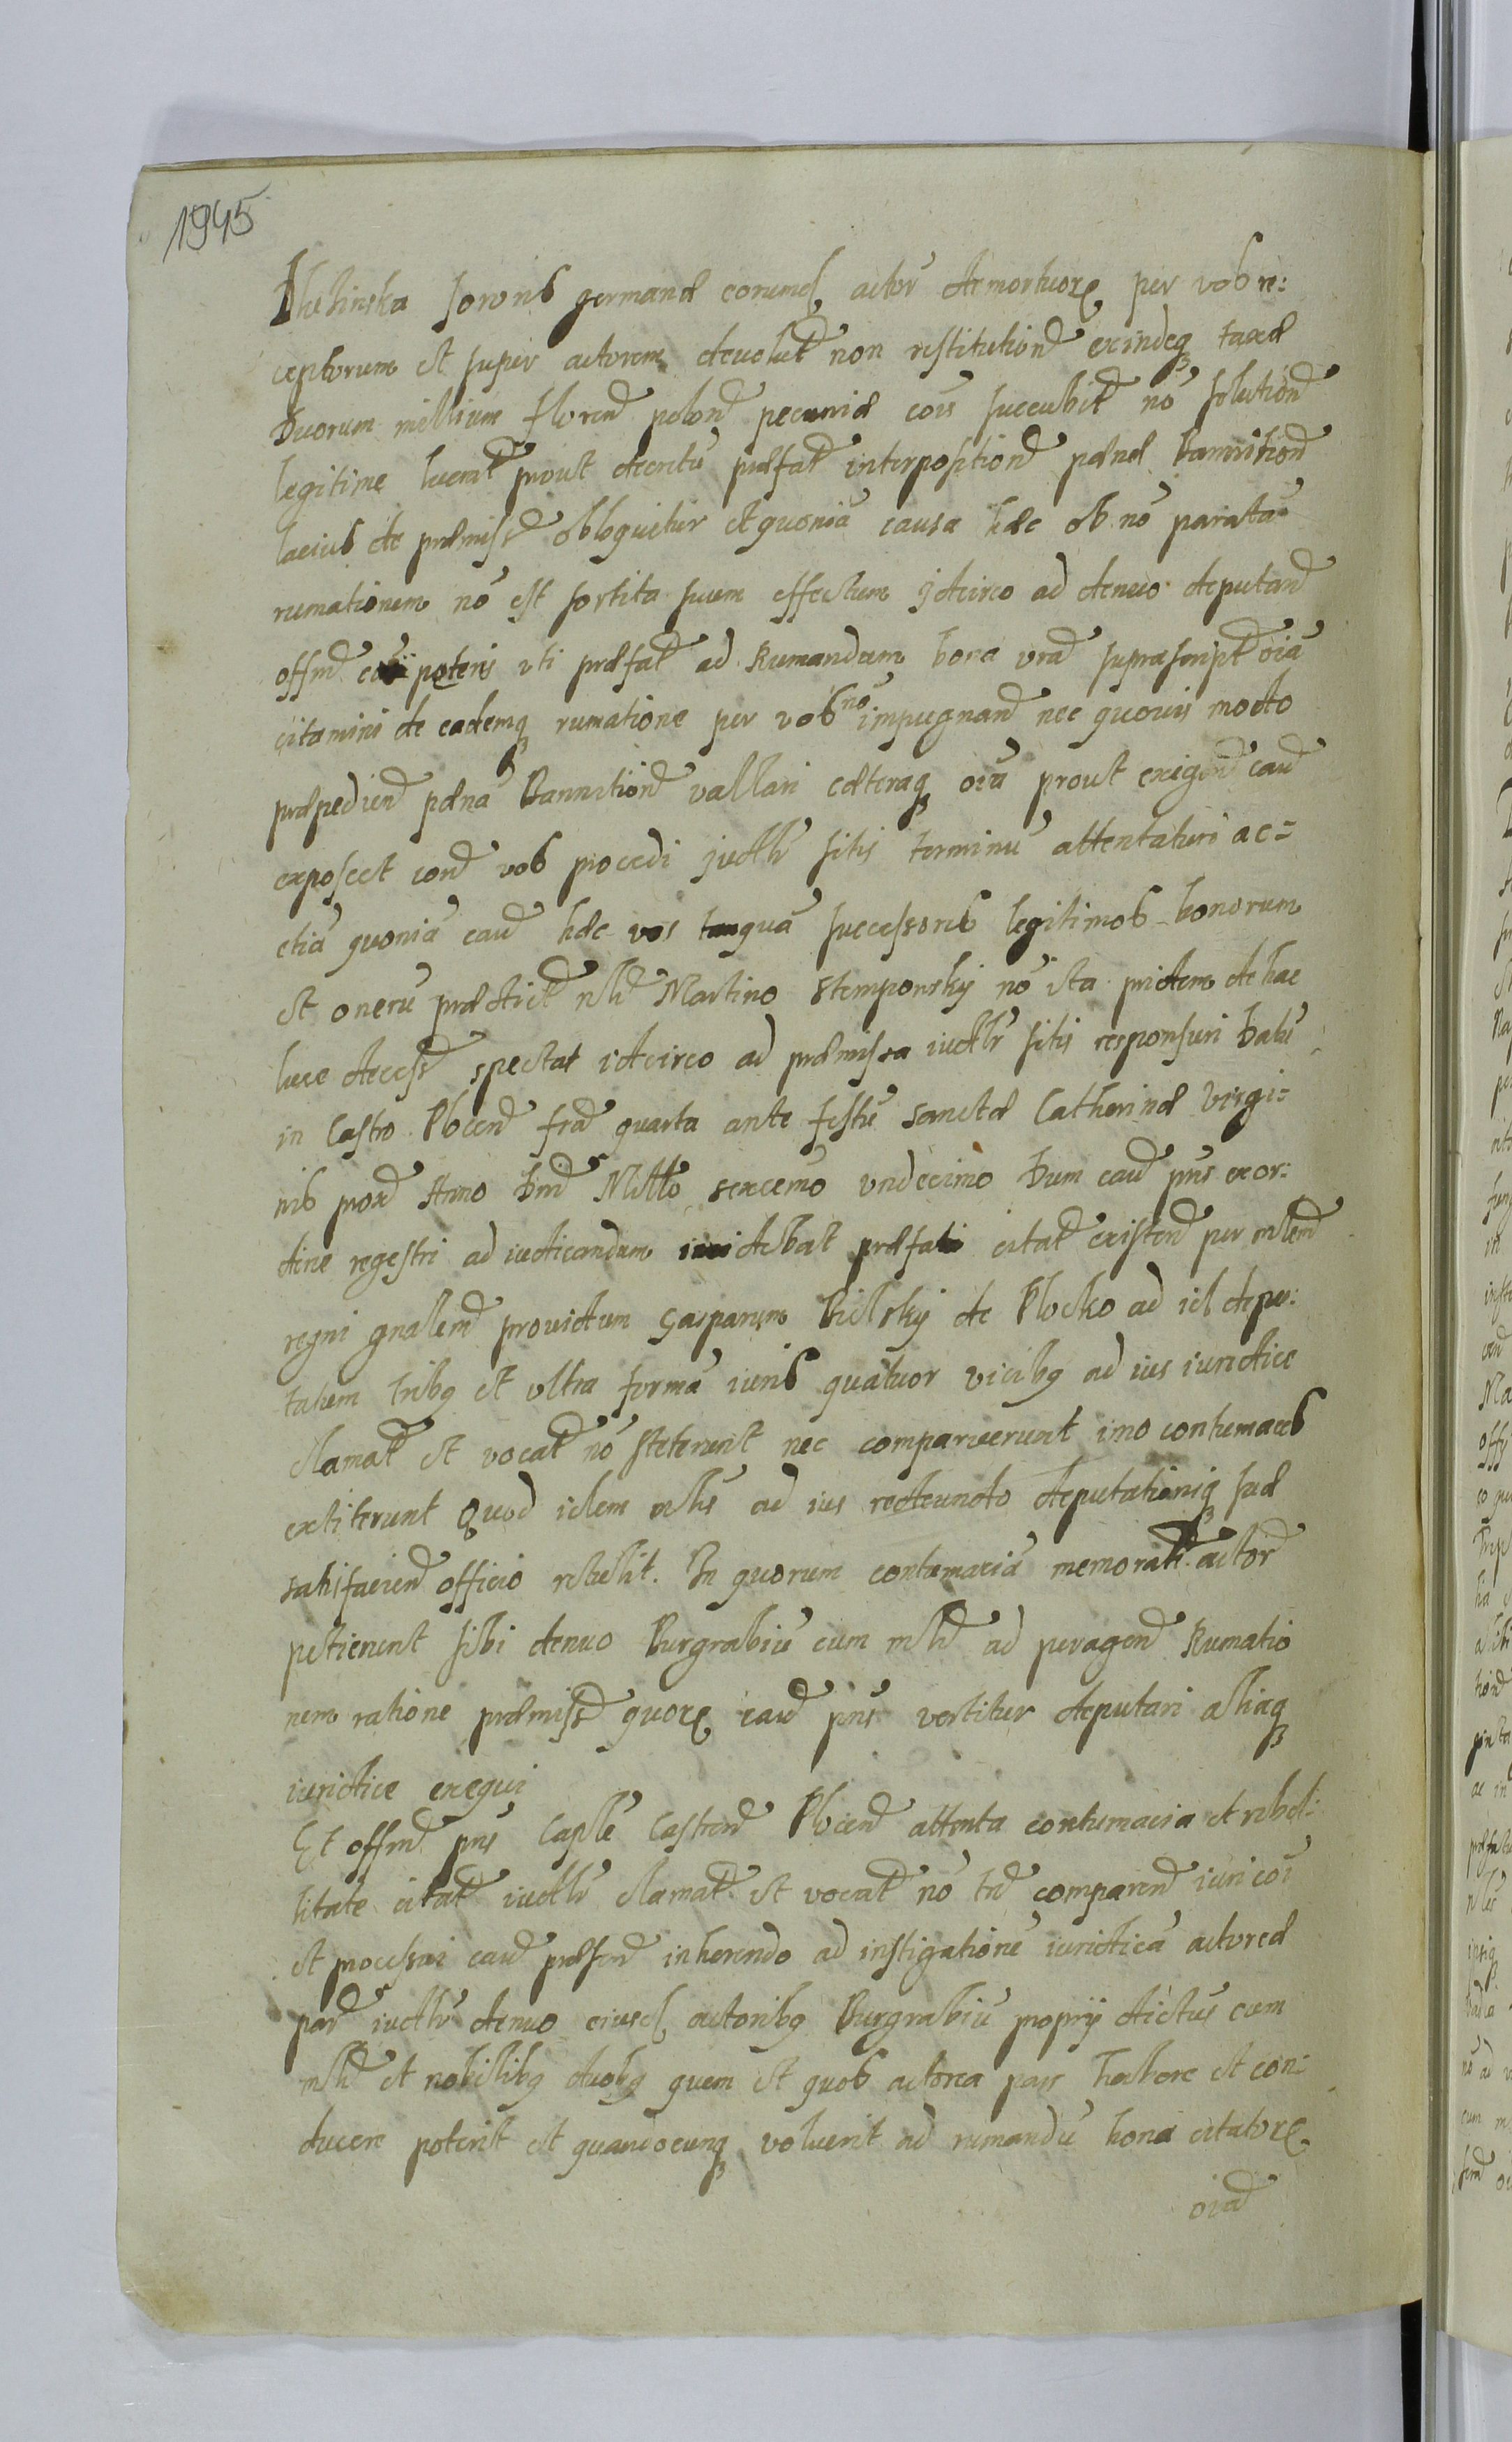 1945
sororis germanæ eorumd actor demortuorꝫ per vos re:
ceptorum et super actorem deuolut non restitutione exindeqꝫ taxæ
Duorum millium floren polon pecuniæ cois succubit nō solution
legitime lucrat prout decretū præfat interposition pænæ bannition
lacius de præmiss obloquitur et quoniā causa hæc ob nō paratā
rumationem nō est sortita suum effectum Idcirco ad denuo deputand
offm poteris vti præfat ad Rumandum bona vra suprascript oia
citamini de eademqꝫ rumatione per vos nō impugnand nec quouis modo
præpediend pæna Bannition vallari cæteraqꝫ oia prout exigen caus
exposcet con vos procedi judlr sitis terminū attentaturi ac=
etiā quoniā caus hæc vos tanquā successores legitimos bonorum
et onerū prædict nlis Martino Stemporskÿ nō ita pridem de hac
luce decess spectat idcirco ad præmissa iudlr sitis responsuri Datū
in Castro Plocen fra quarta ante festū sanctæ Catherinæ Virgi:
nis prox Anno Dni Millo sexcemo vndecimo Dum caus pns ex or:
dine regestri ad iudicandum præfati citat existen per mlem
regni gnalem prouidum Casparum Bielskÿ de Plocko ad id depu:
tatum tribqꝫ et vltra formā iuris quatuor vicibqꝫ ad ius iuridice
clamat et vocat nō steterunt nec comparuerunt imo contumaces
extiterunt Quod idem mlis ad ius redeundo deputationiqꝫ suæ
satisfaciend officio retulit. In quorum contumaciā memorati actor
petierunt sibi denuo Burgrabiū cum mli ad peragend Rumatio
nem ratione præmiss quorꝫ caus pns vertitur deputari aliaqꝫ
iuridice exequi
Et offm pns Caple Castren Plocen attenta contumacia et rebel:
litate citat iudlr clamat et vocat nō tn comparen iuri coi
et processui caus præsen inherendo ad instigationē iuridicā actoreæ
par iudlr denuo eiusd actoribqꝫ Burgrabiū proprÿ dictus cum
mli et nobilibqꝫ duobqꝫ quem et quos actorea pars habere et con:
ducere poterit et quandocunqꝫ voluerit ad rumandū bona citatorꝫ
oia